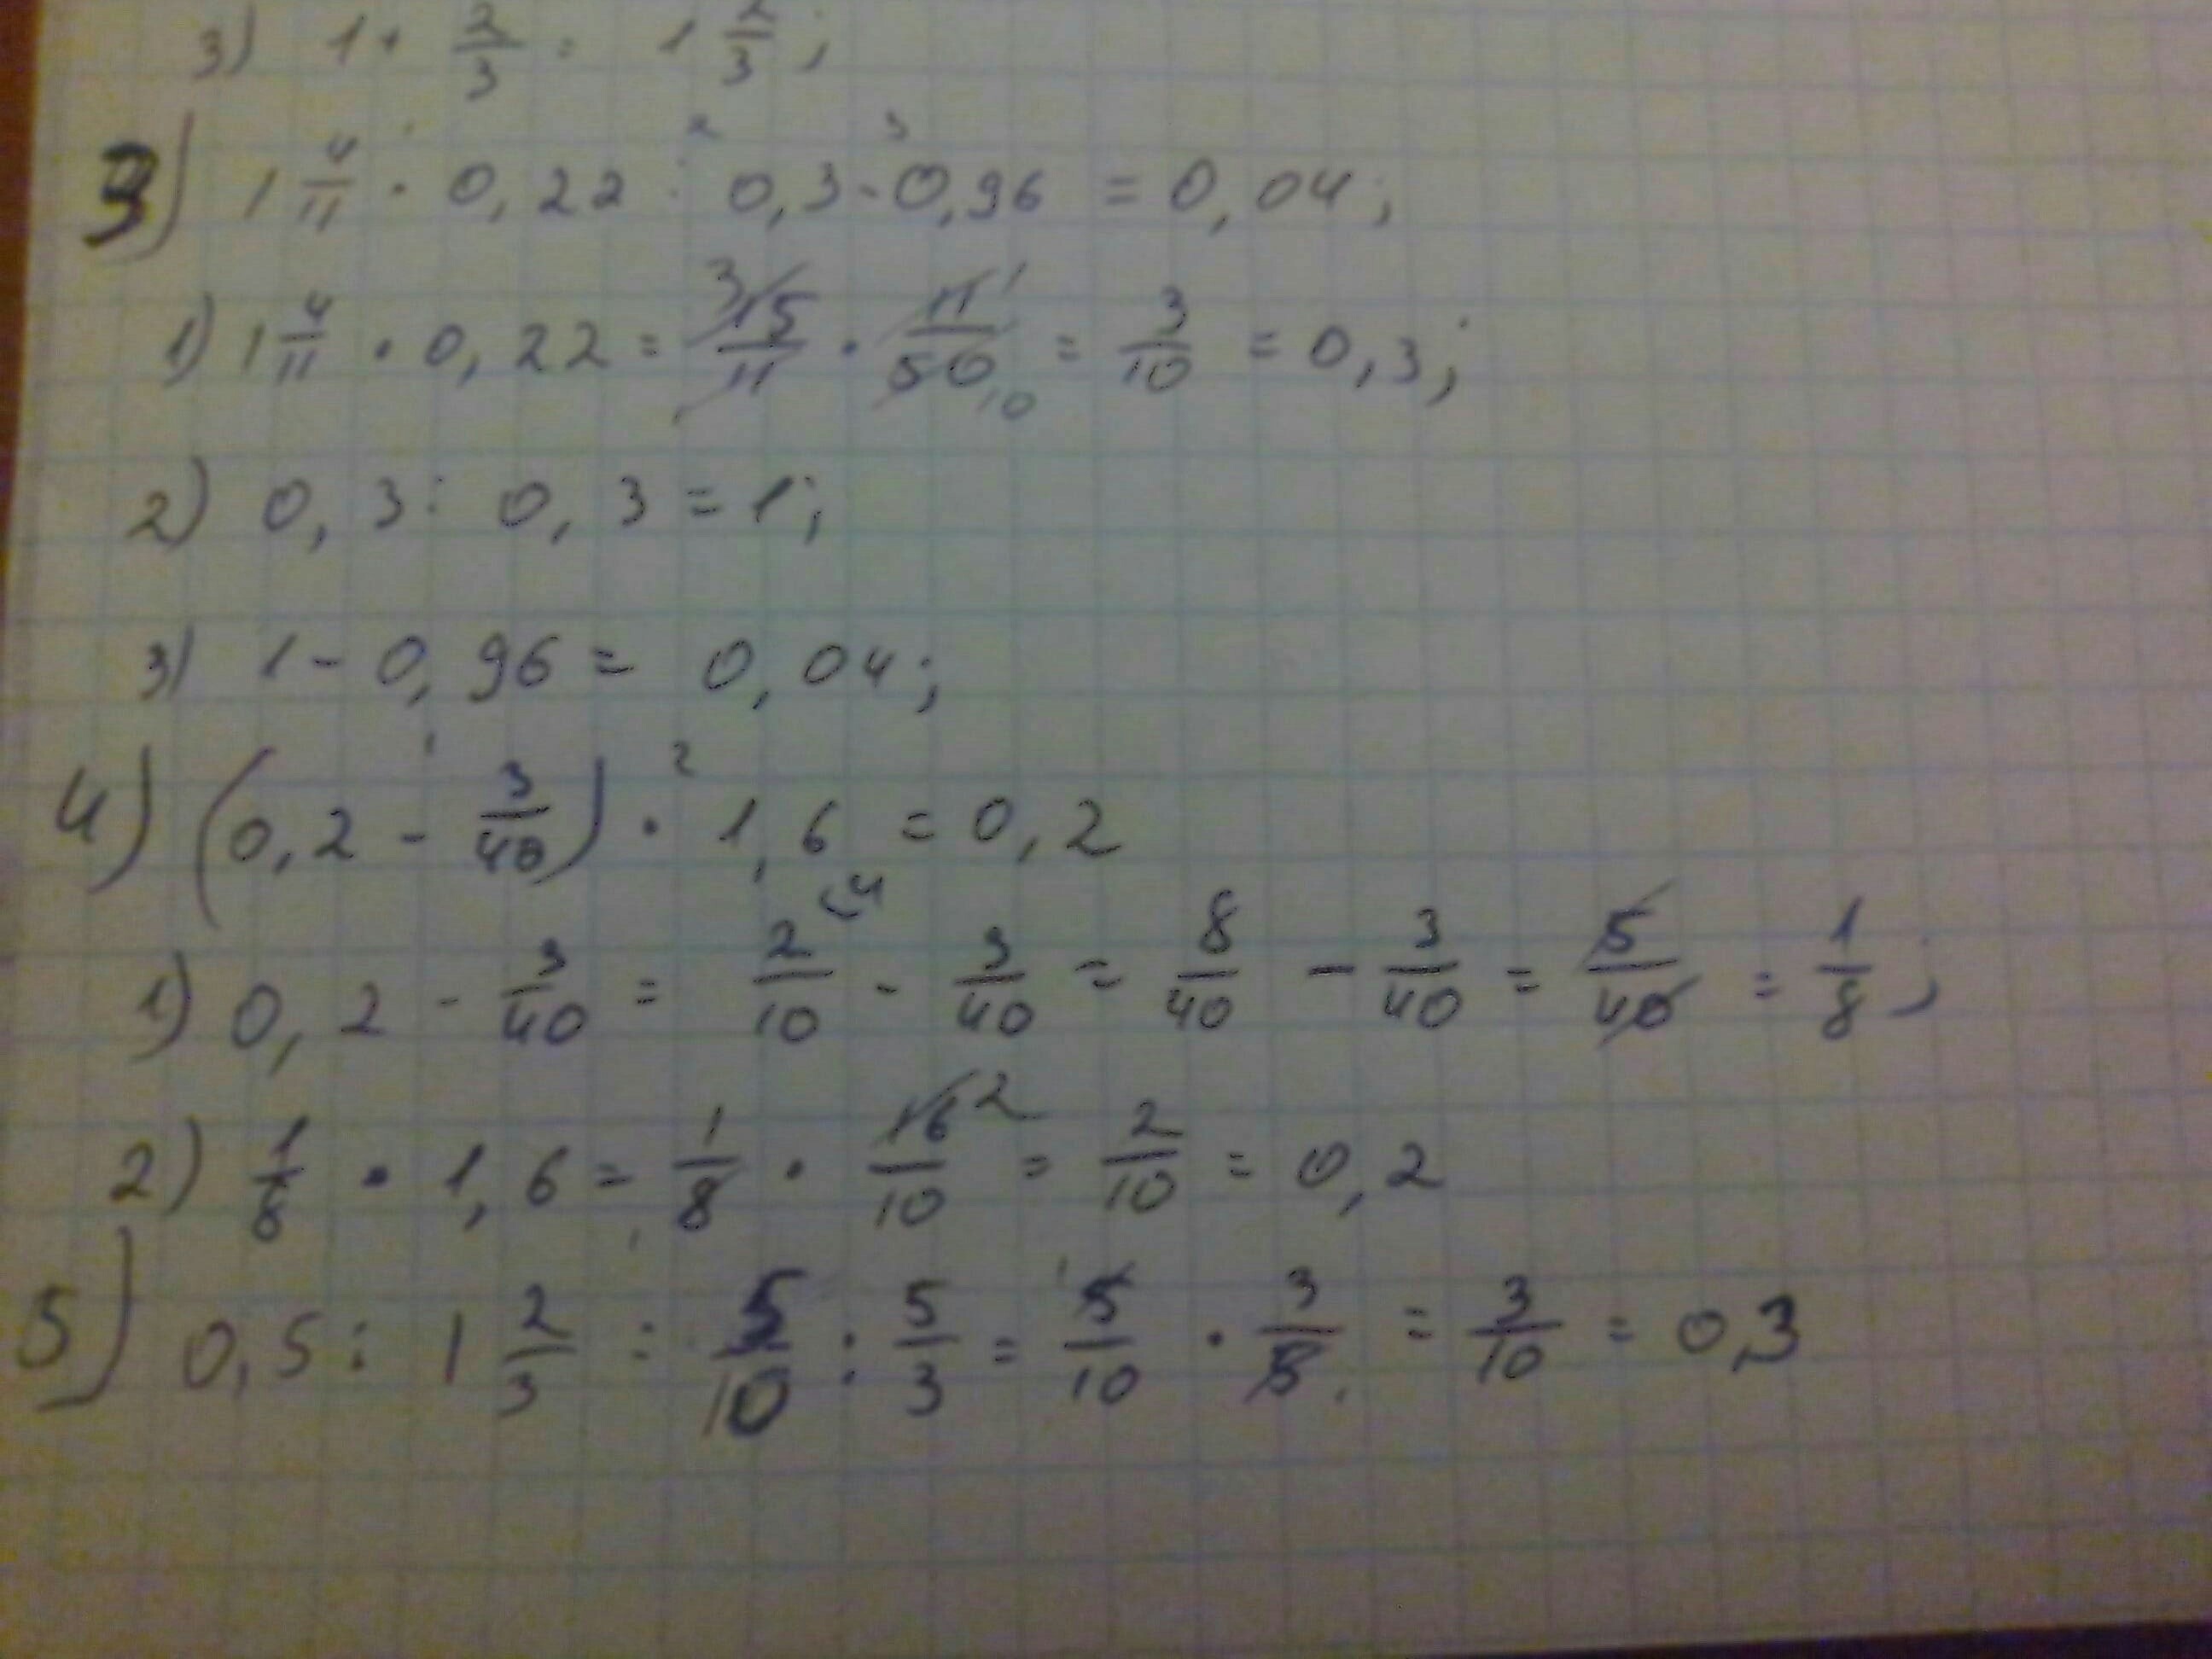 3) 1 + 2/3 = 1 2/3;
3) 1 4/11 · 0,22 : 0,3 - 0,96 = 0,04;
1) 1 4/11 · 0,22 = 15/11 · 11/50 = 3/10 = 0,3;
2) 0,3 : 0,3 = 1;
3) 1 - 0,96 = 0,04;
4) (0,2 - 3/40) · 1,6 = 0,2
1) 0,2 - 3/40 = 2/10 - 3/40 = 8/40 - 3/40 = 5/40 = 1/8;
2) 1/8 · 1,6 = 1/8 · 16/10 = 2/10 = 0,2
5) 0,5 : 1 2/3 = 5/10 : 5/3 = 5/10 · 3/5 = 3/10 = 0,3